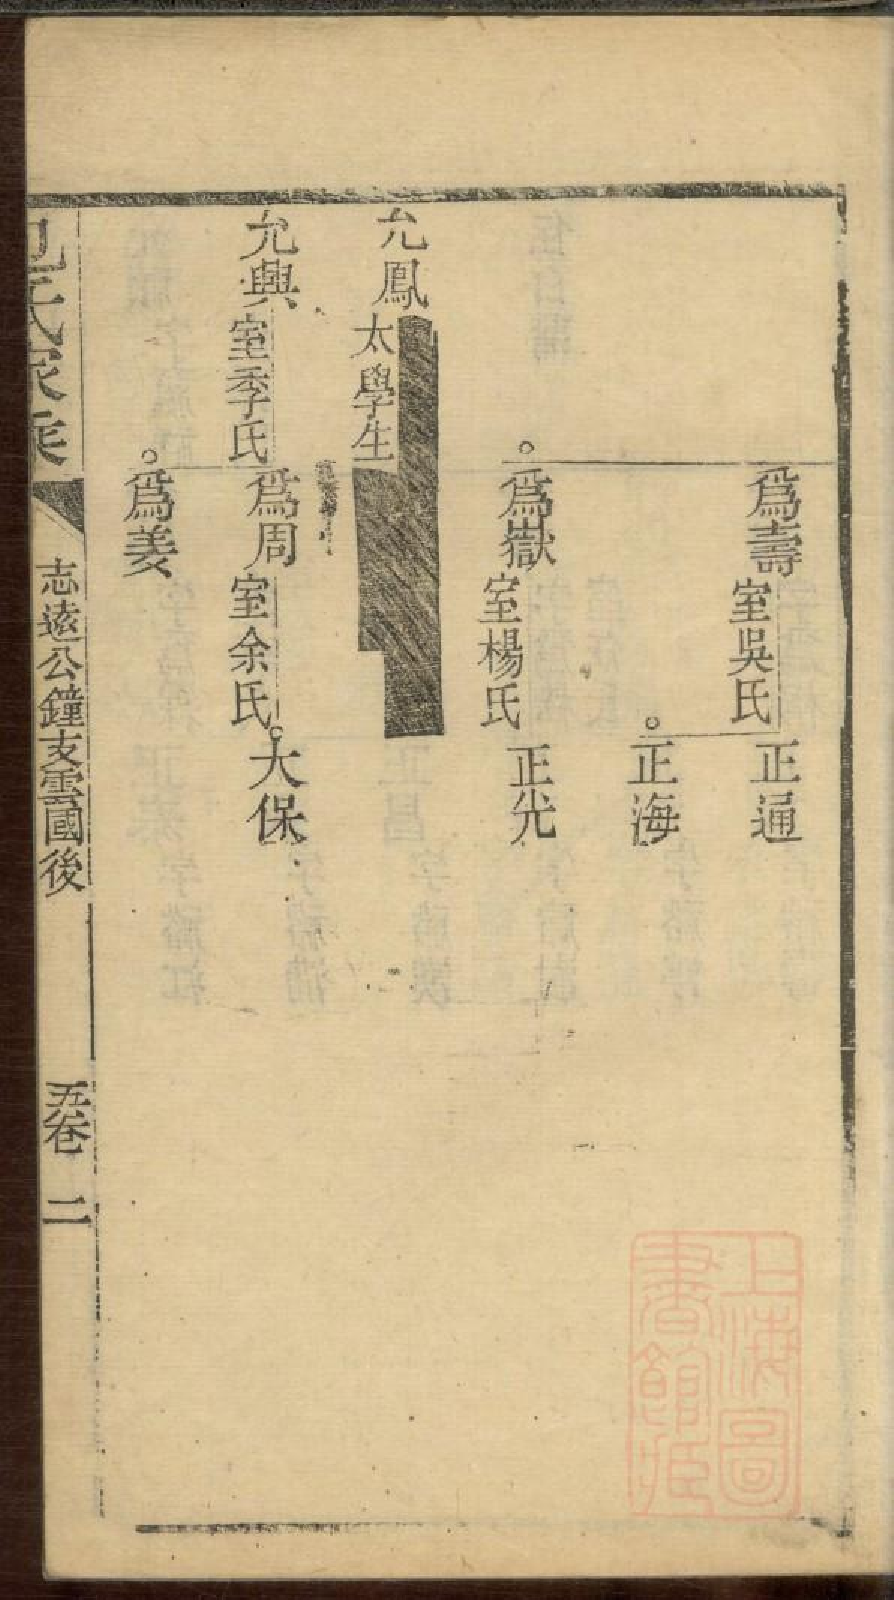 爲壽室吳氏
正通
正海
爲嶽室楊氏
正光
允鳳太學生
允興室季氏
爲周室余氏
大保
爲姜
氏家乘
志遠公鐘支雲國後
五卷
二
上海圖
書館藏